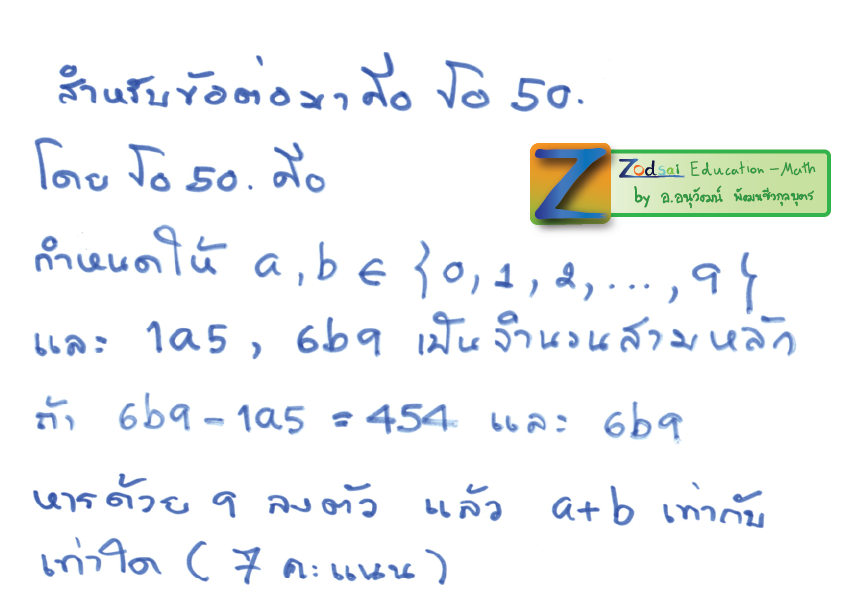 สำหรับข้อต่อมา คือ ข้อ 50.
โดย ข้อ 50. คือ
Z Zodsai Education - Math
by อ.อนุวัฒน์ พัฒนชีวกุลบุตร
กำหนดให้ a, b ∈ {0, 1, 2, ..., 9}
และ 1a5, 6b9 เป็นจำนวนสามหลัก
ถ้า 6b9 - 1a5 = 454 และ 6b9
หารด้วย 9 ลงตัว แล้ว a+b เท่ากับ
เท่าใด (7 คะแนน)